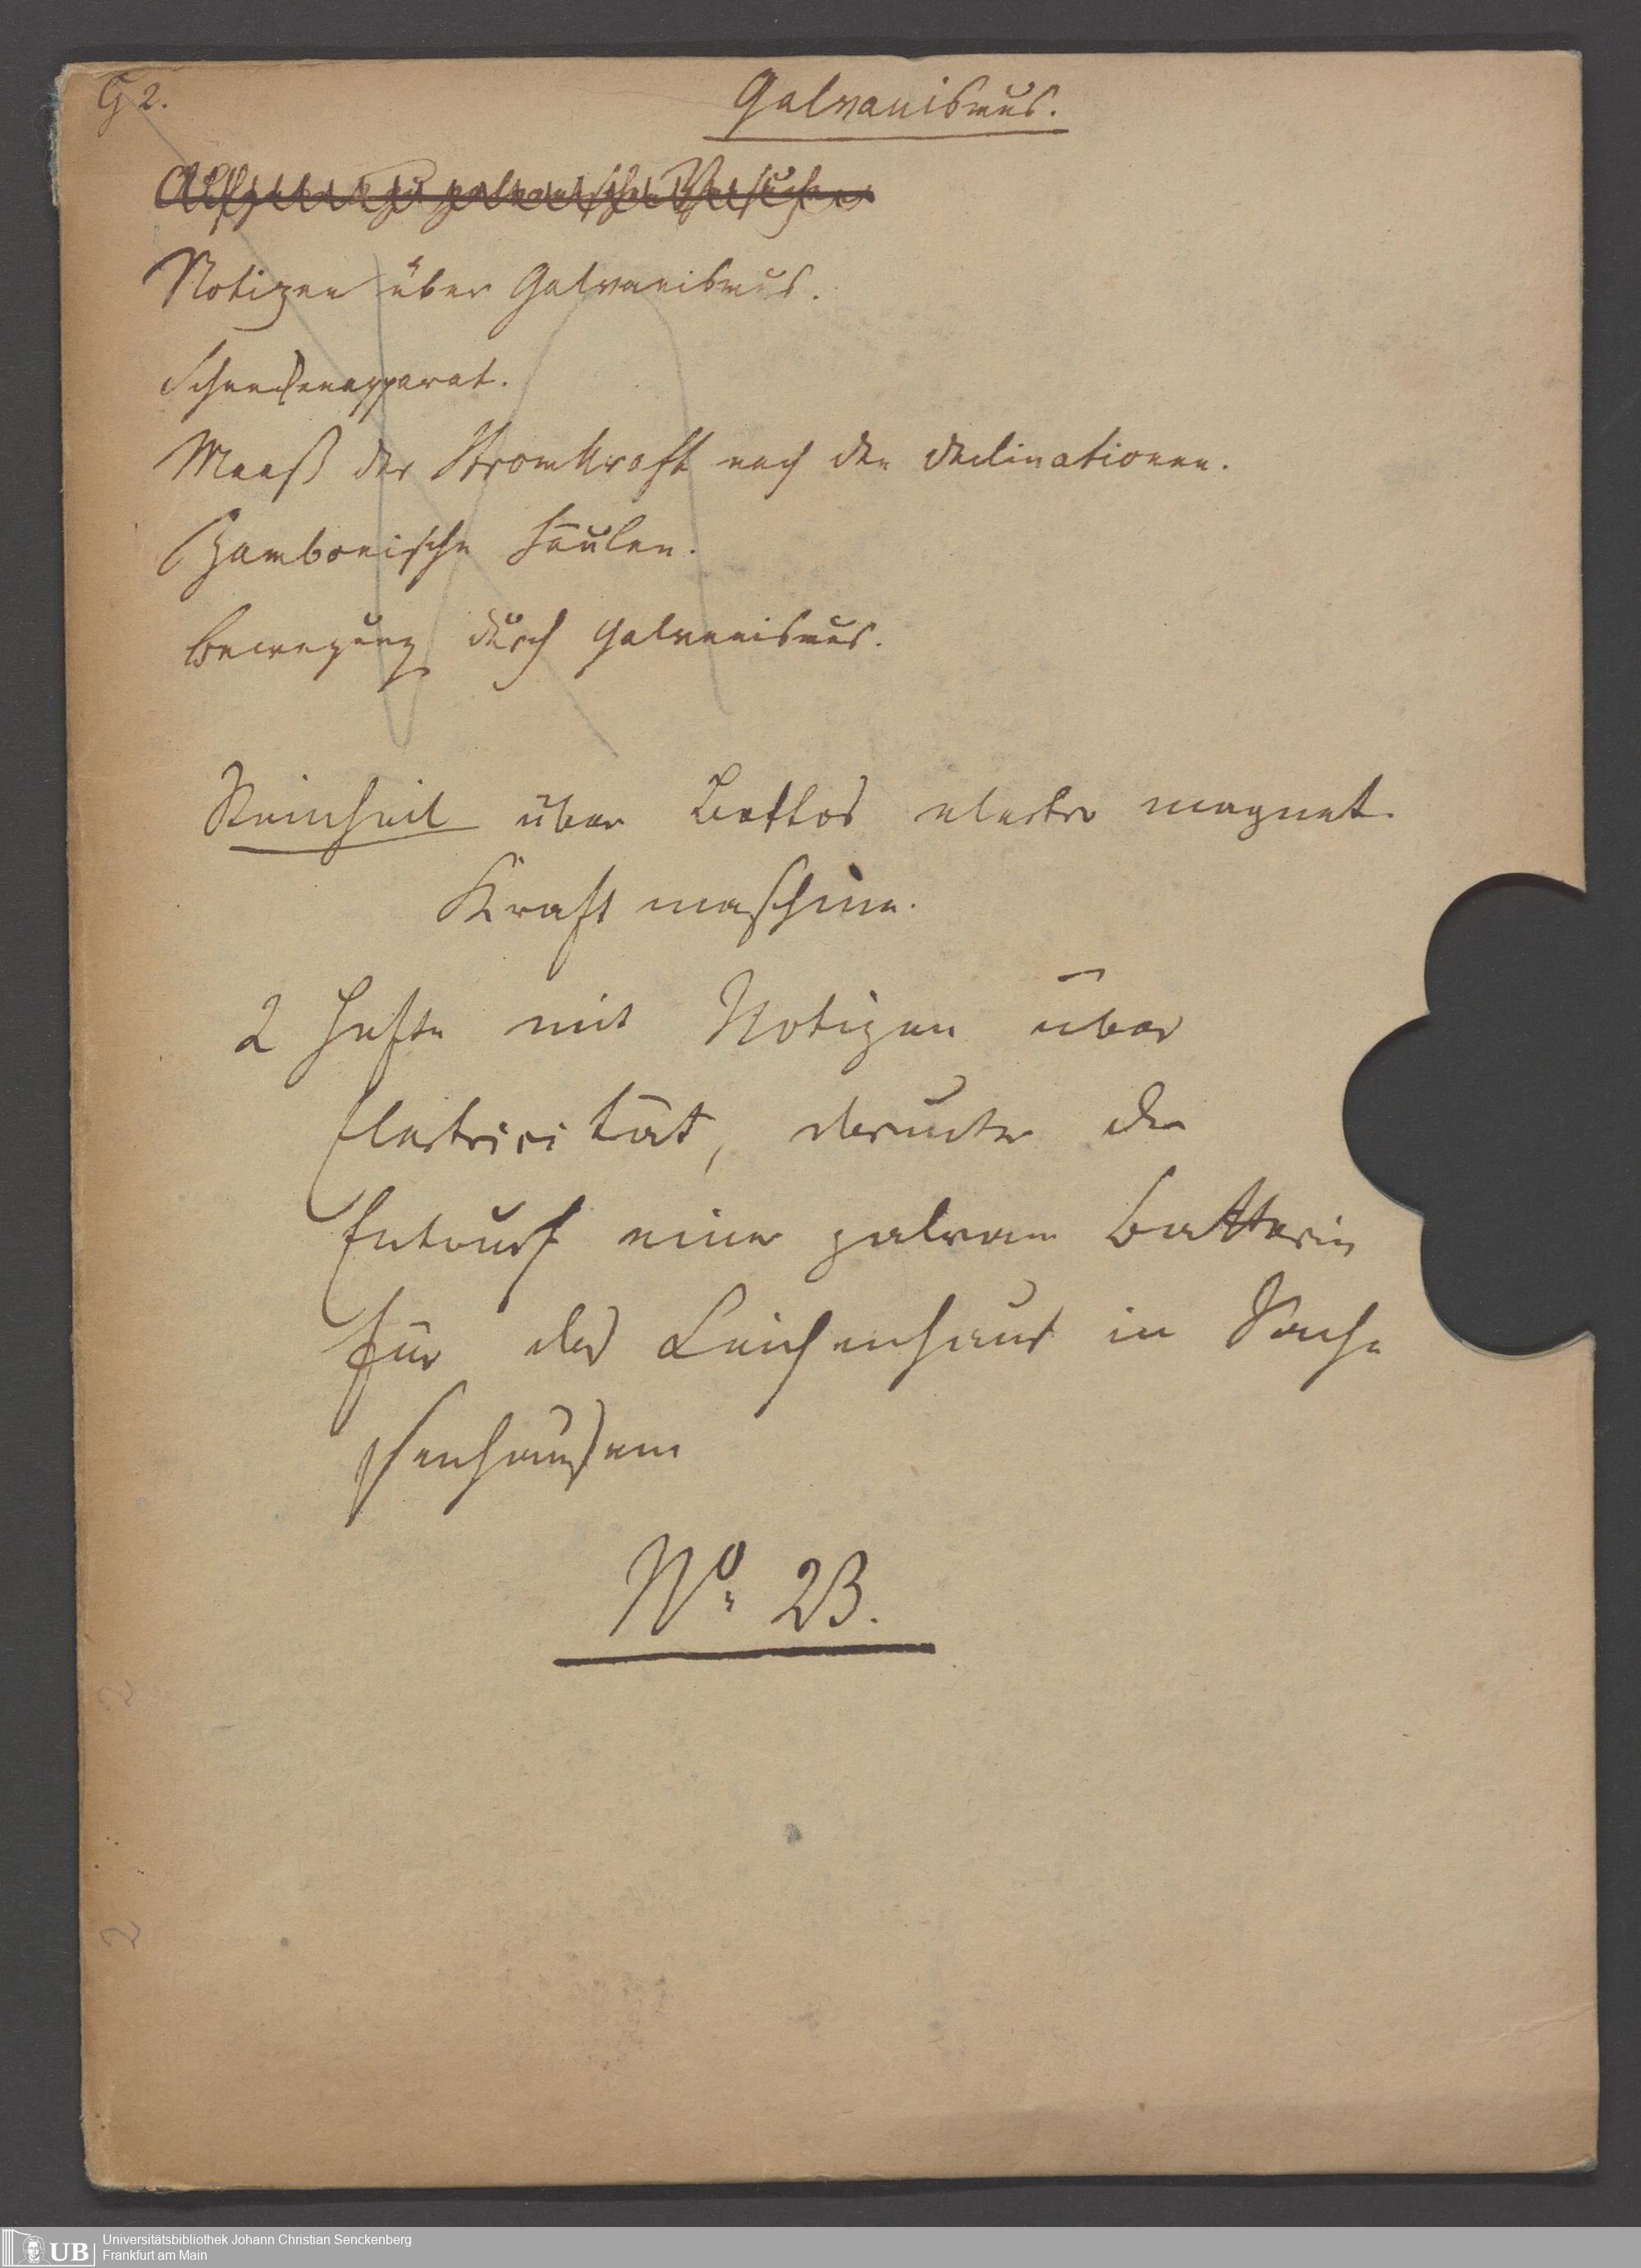 G 2.
Galvanismus.
Notizen über Galvanismus.
Maaß der Stromkraft nach den Declinationen.
Zambonische Säulen.
Bewegung durch Galvanismus.
Steinheil über Bottos electro magnet.
Kraft maschine.
2 Hefte mit Notizen über
Electricität, darunter der
Entwurf einer galvan Batterie
für das Leichenhaus in Sachs
senhausen
No. 23.
2
2
UB
Universitätsbibliothek Johann Christian Senckenberg
Frankfurt am Main